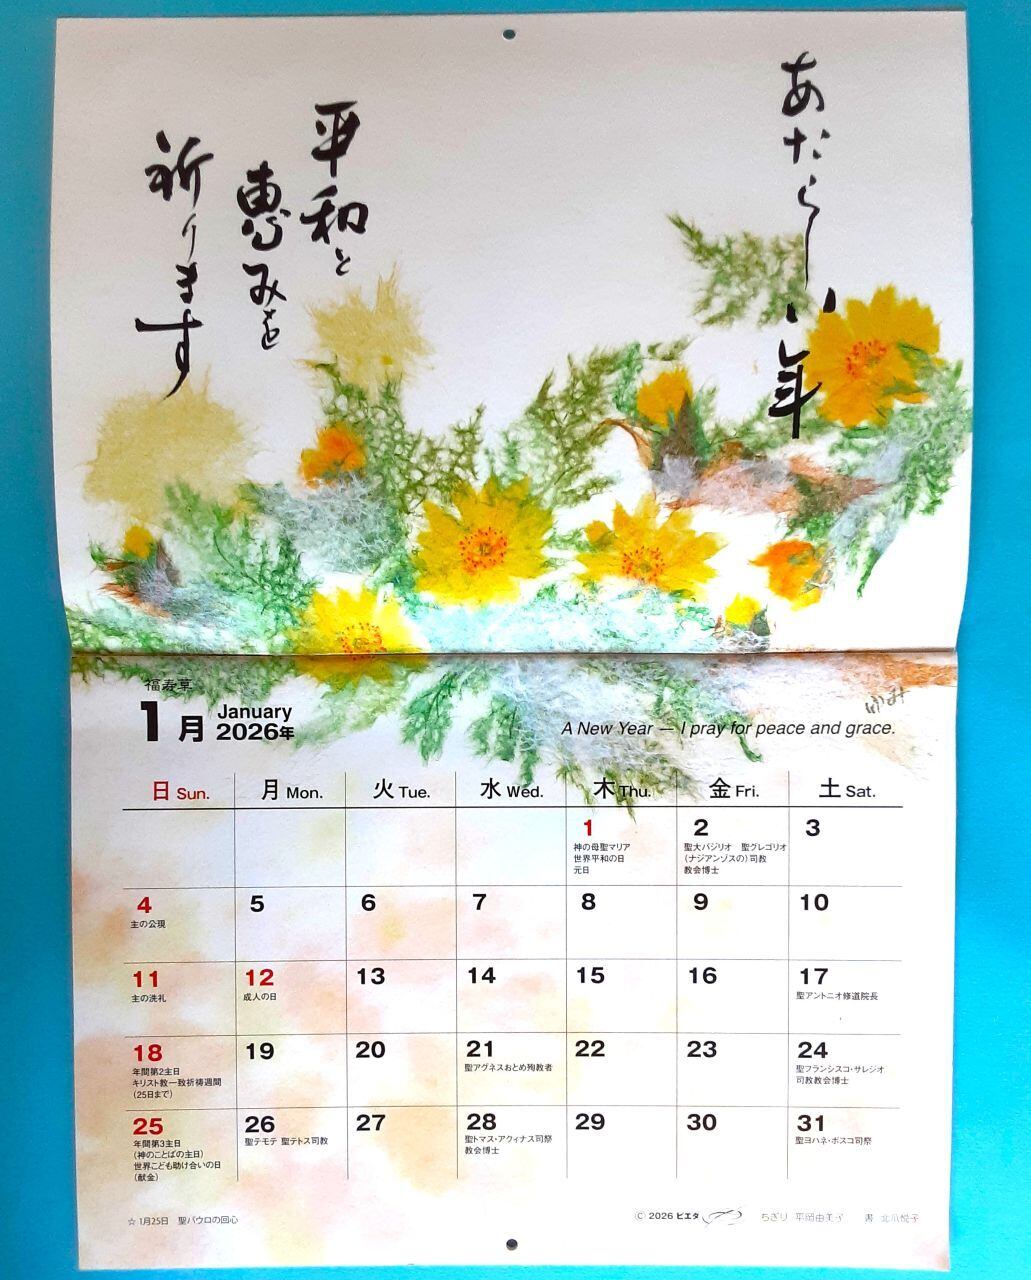 あたらしい年
平和と
恵みを
祈ります
福寿草
1月 January
2026年
A New Year — I pray for peace and grace.
日 Sun. 月 Mon. 火 Tue. 水 Wed. 木 Thu. 金 Fri. 土 Sat.
1 2 3
神の母聖マリア
世界平和の日
元日
聖大バジリオ 聖グレゴリオ
（ナジアンゾスの）司教
教会博士
4 5 6 7 8 9 10
主の公現
11 12 13 14 15 16 17
主の洗礼
成人の日
聖アントニオ修道院長
18 19 20 21 22 23 24
年間第2主日
キリスト教一致祈祷週間
（25日まで）
聖アグネスおとめ殉教者
聖フランシスコ・サレジオ
司教教会博士
25 26 27 28 29 30 31
年間第3主日
（神のことばの主日）
世界こども助け合いの日
（献金）
聖テモテ 聖テトス司教
聖トマス・アクィナス司祭
教会博士
聖ヨハネ・ボスコ司祭
☆ 1月25日 聖パウロの回心
© 2026 ピエタ ちぎり 平岡由美子 書 北爪悦子